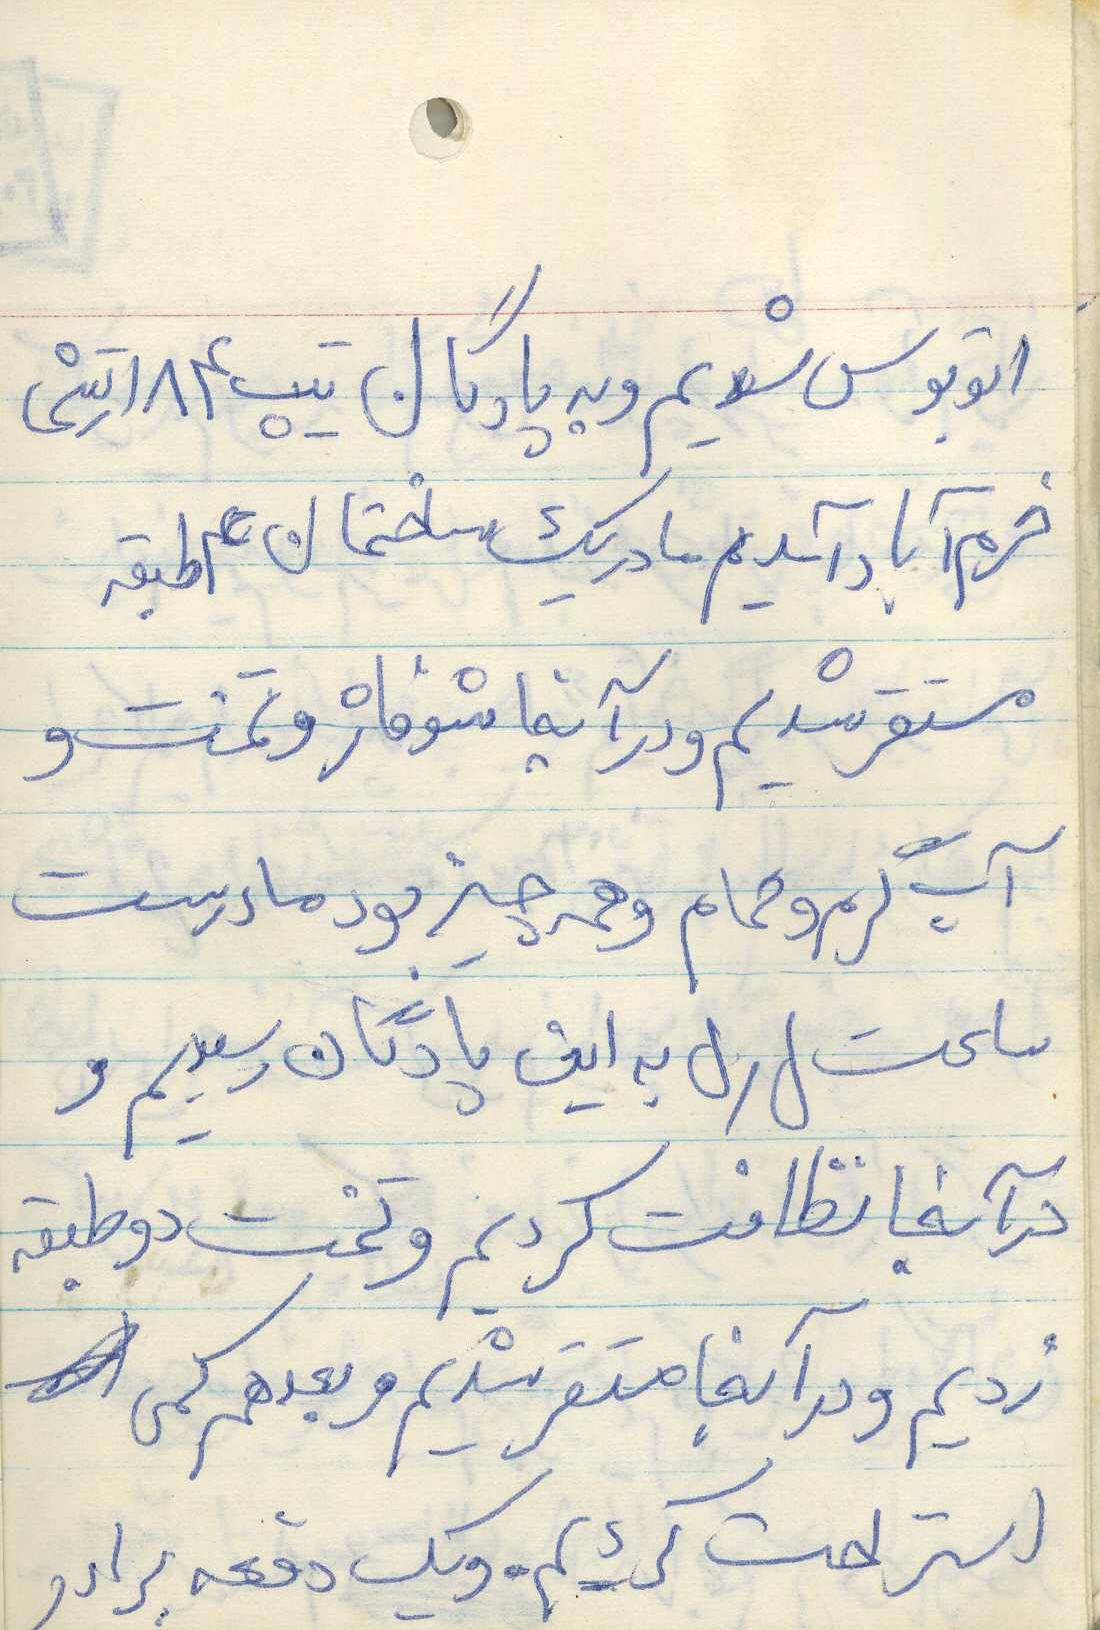 اتوبوس شدیم و به پادگان تیپ ۸۴ ارتشی
خرم آباد آمدیم ما در یک ساختمان ۴ طبقه
مستقر شدیم و در آنجا شوفاژ و تخت و
آب گرم و حمام و همه چیز بود ما درست
ساعت به این پادگان رسیدیم و
در آنجا نظافت کردیم و تخت دو طبقه
زدیم و در آنجا متقر شدیم و بعد هم کمی
استراحت کردیم. و یک دفعه برادر